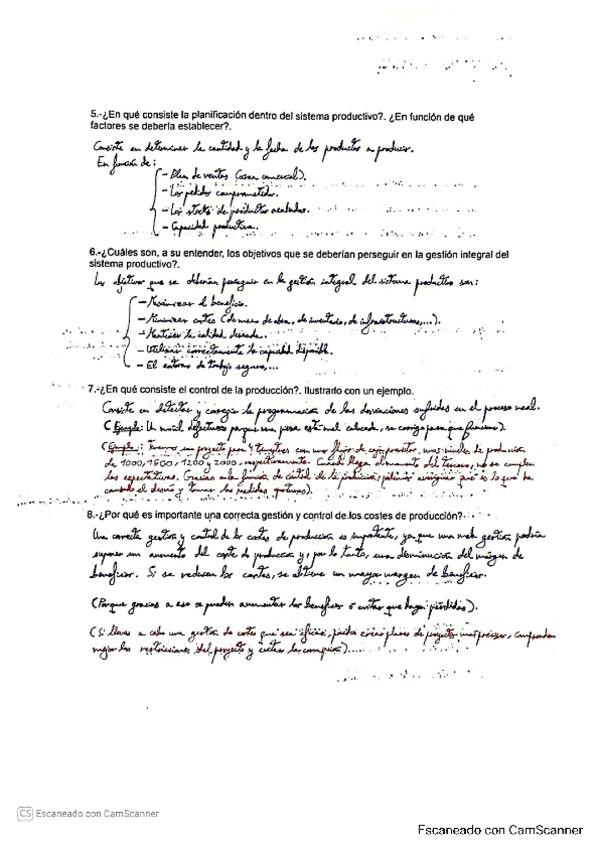 5.-¿En qué consiste la planificación dentro del sistema productivo?. ¿En función de qué
factores se debería establecer?.
Consiste en determinar la cantidad y la fecha de los productos a producir.
En función de:
- Plan de ventas (área comercial).
- Los pedidos comprometidos.
- Los stocks de productos acabados.
- Capacidad productiva.
6.-¿Cuáles son, a su entender, los objetivos que se deberían perseguir en la gestión integral del
sistema productivo?.
Los objetivos que se deberían perseguir en la gestión integral del sistema productivo son:
- Maximizar el beneficio.
- Minimizar costes (de mano de obra, de inventario, de infraestructuras,...).
- Mantener la calidad deseada.
- Utilizar correctamente la capacidad disponible.
- El entorno de trabajo seguro,...
7.-¿En qué consiste el control de la producción?. Ilustrarlo con un ejemplo.
Consiste en detectar y corregir la programación de las desviaciones sufridas en el proceso real.
(Ejemplo: Un móvil defectuoso porque una pieza está mal colocada, se corrige para que funcione).
(Ejemplo: Tenemos un proyecto para 4 trimestres con un flujo de caja positivo, unos niveles de producción
de 1000, 1500, 1200 y 2000, respectivamente. Cuando llega el momento del tercero, no se cumplen
las expectativas. Gracias a la función de control de la producción, podemos averiguar qué es lo que ha
causado el desvío y tomar las medidas oportunas).
8.-¿Por qué es importante una correcta gestión y control de los costes de producción?
Una correcta gestión y control de los costes de producción es importante, ya que una mala gestión podría
suponer un aumento del coste de producción y, por lo tanto, una disminución del margen de
beneficios. Si se reducen los costes, se obtiene un mayor margen de beneficios.
(Porque gracias a eso se pueden aumentar los beneficios o evitar que haya pérdidas).
(Si llevas a cabo una gestión de costes que sea eficiente, podrás crear planes de proyectos más precisos, comprender
mejor las restricciones del proyecto y evitar la corrupción)....
CS Escaneado con CamScanner
Escaneado con CamScanner